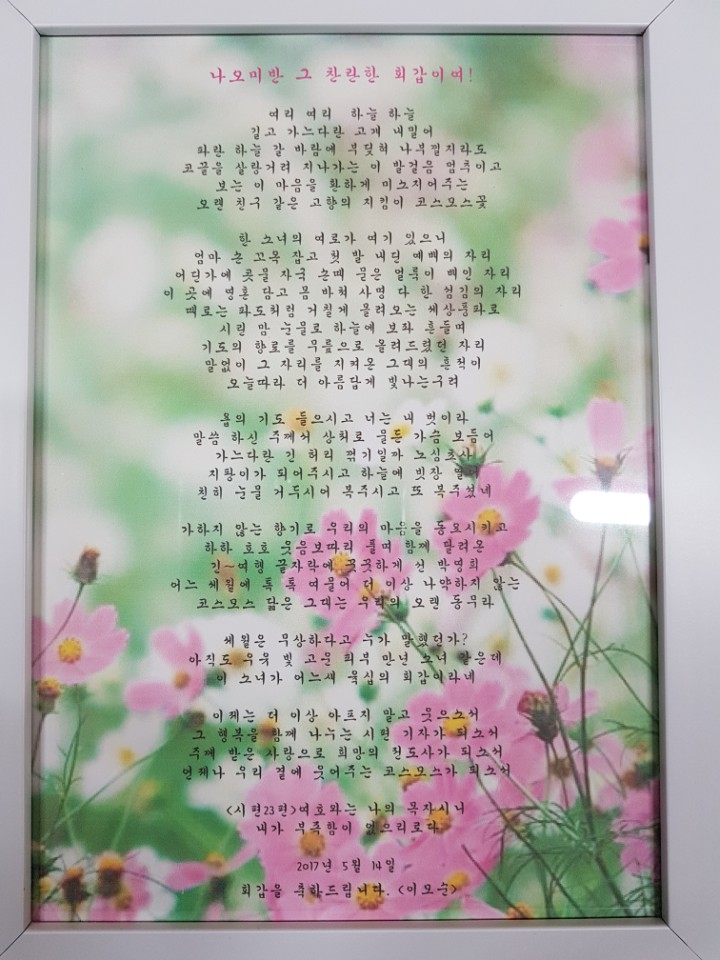 나오미반 그 찬란한 회갑이여!
여리 여리 하늘 하늘
길고 가느다란 고개 내밀어
파란 하늘 갈 바람에 부딪혀 나부낄지라도
코끝을 살랑거려 지나가는 이 발걸음 멈추이고
보는 이 마음을 환하게 미소지어주는
오랜 친구 같은 고향의 지킴이 코스모스꽃
한 소녀의 여로가 여기 있으니
엄마 손 꼬옥 잡고 첫 발 내딘 예배의 자리
어딘가에 콧물 자국 손때 묻은 얼룩이 배인 자리
이 곳에 영혼 담고 몸 바쳐 사명 다 한 섬김의 자리
때로는 파도처럼 거칠게 몰려오는 세상풍파로
시린 맘 눈물로 하늘에 보좌 흔들며
기도의 향로를 무릎으로 올려드렸던 자리
말없이 그 자리를 지켜온 그대의 흔적이
오늘따라 더 아름답게 빛나는구려
욥의 기도 들으시고 너는 내 벗이라
말씀 하신 주께서 상처로 물든 가슴 보듬어
가느다란 긴 허리 꺾기일까 노심초사
지팡이가 되어주시고 하늘에 빗장 열어
친히 눈물 거두시어 복주시고 또 복주셨네
가하지 않는 향기로 우리의 마음을 동요시키고
하하 호호 웃음보따리 풀며 함께 달려온
긴~여행 끝자락에 꿋꿋하게 선 박영희
어느 세월에 톡톡 여물어 더 이상 나약하지 않는
코스모스 닮은 그대는 우리의 오랜 동무라
세월은 무상하다고 누가 말했던가?
아직도 우윳 빛 고운 피부 만년 소녀 같은데
이 소녀가 어느새 육십의 회갑이라네
이제는 더 이상 아프지 말고 웃으소서
그 행복을 함께 나누는 시편 기자가 되소서
주께 받은 사랑으로 희망의 전도사가 되소서
언제나 우리 곁에 웃어주는 코스모스가 되소서
<시편23편>여호와는 나의 목자시니
내가 부족함이 없으리로다
2017년 5월 14일
회갑을 축하드립니다. <이모순>